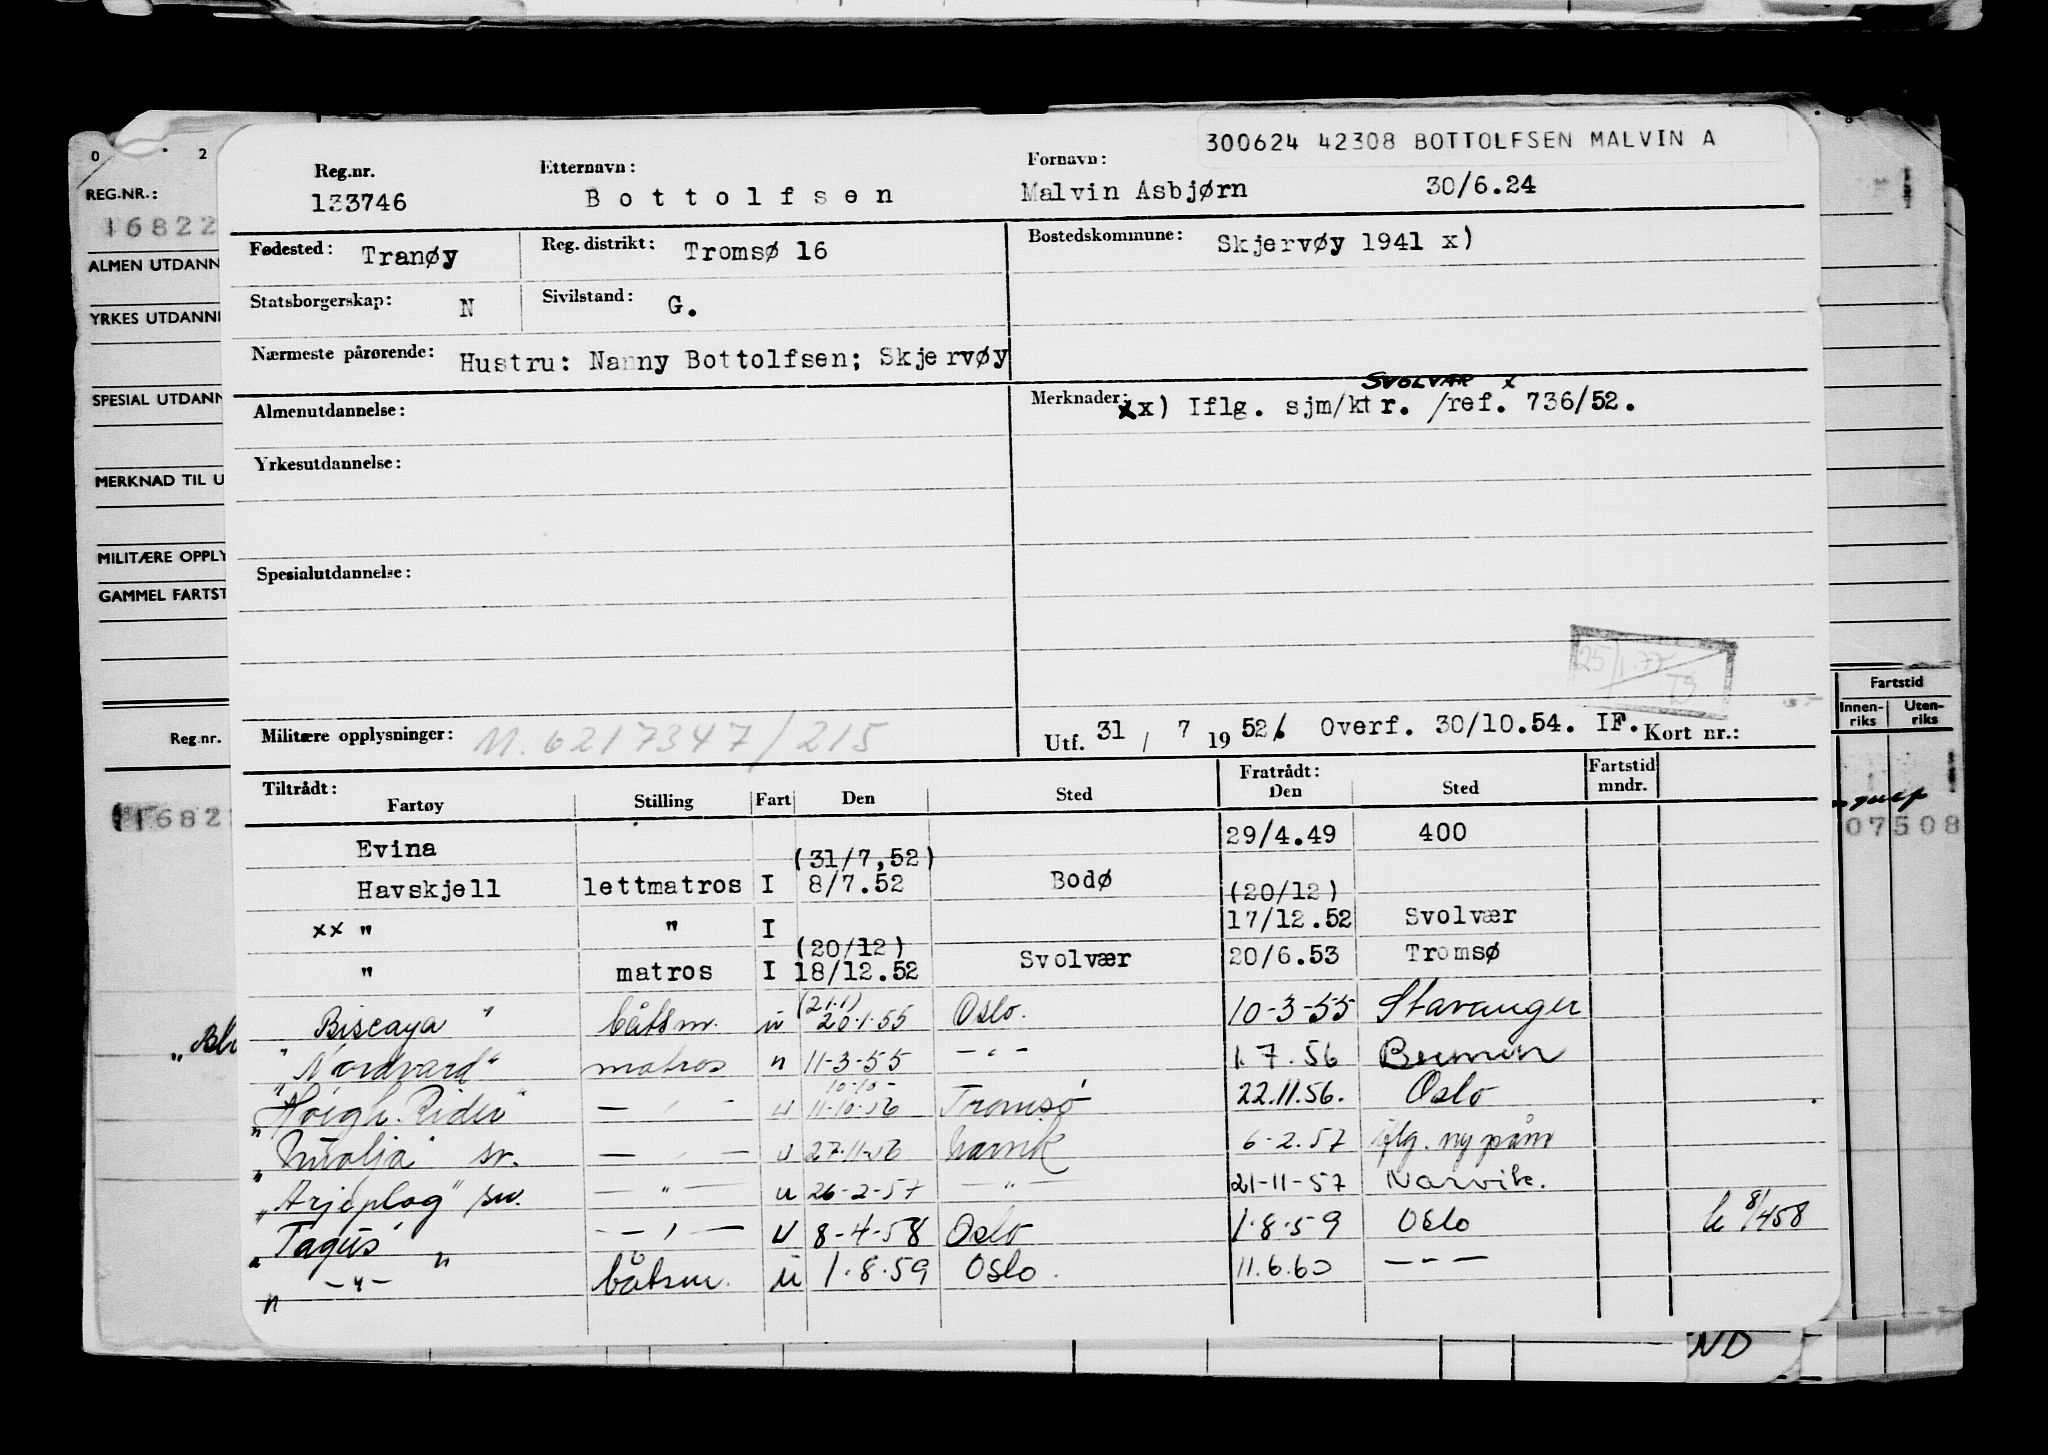 300624 42308 BOTTOLFSEN MALVIN A
Reg.nr. Etternavn: Fornavn:
133746 Bottolfsen Malvin Asbjørn 30/6.24
Fødested: Tranøy Reg. distrikt: Tromsø 16 Bostedskommune: Skjervøy 1941 x)
Statsborgerskap: N Sivilstand: G.
Nærmeste pårørende: Hustru: Nanny Bottolfsen; Skjervøy
SVOLVÆR x
Almenutdannelse: Merknader: xx) Iflg. sjm/ktr. /ref. 736/52.
Yrkesutdannelse:
Spesialutdannelse:
25/1-77
TS
Militære opplysninger: M. 6217347/215 Utf. 31 / 7 1952 Overf. 30/10.54. IF. Kort nr.:
Tiltrådt: Fratrådt: Fartstid
Fartøy Stilling Fart Den Sted Den Sted mndr.
Evina 29/4.49 400
(31/7,52)
Havskjell lettmatros I 8/7.52 Bodø
(20/12)
xx " " I 17/12.52 Svolvær
(20/12)
" matros I 18/12.52 Svolvær 20/6.53 Tromsø
(21.1)
Biscaya " båtsm. u 20.1.55 Oslo. 10-3-55 Stavanger
"Nordvard" matros " 11-3-55 — " — 1.7.56 Bremen
10-10-
"Høigh. Rider" — " — u 11-10-56 Tromsø 22.11.56. Oslo
sv. — " — u 27-11-56 Narvik 6-2.57 iflg. ny påm
"Arjeplog" sv. — " — u 26-2-57 — " — 21-11-57 Narvik.
"Tagus" " — " — u 8-4-58 Oslo 1.8.59 Oslo 8/458
" — " — båtsm. u 1.8.59 Oslo. 11.6.60 — — —
0 2
REG.NR.:
16822
ALMEN UTDANN
YRKES UTDANNE
SPESIAL UTDANN
MERKNAD TIL U
MILITÆRE OPPLY
GAMMEL FARTST
Reg.nr.
1682
"Bl
Fartstid
Innenriks Utenriks
07508
ND